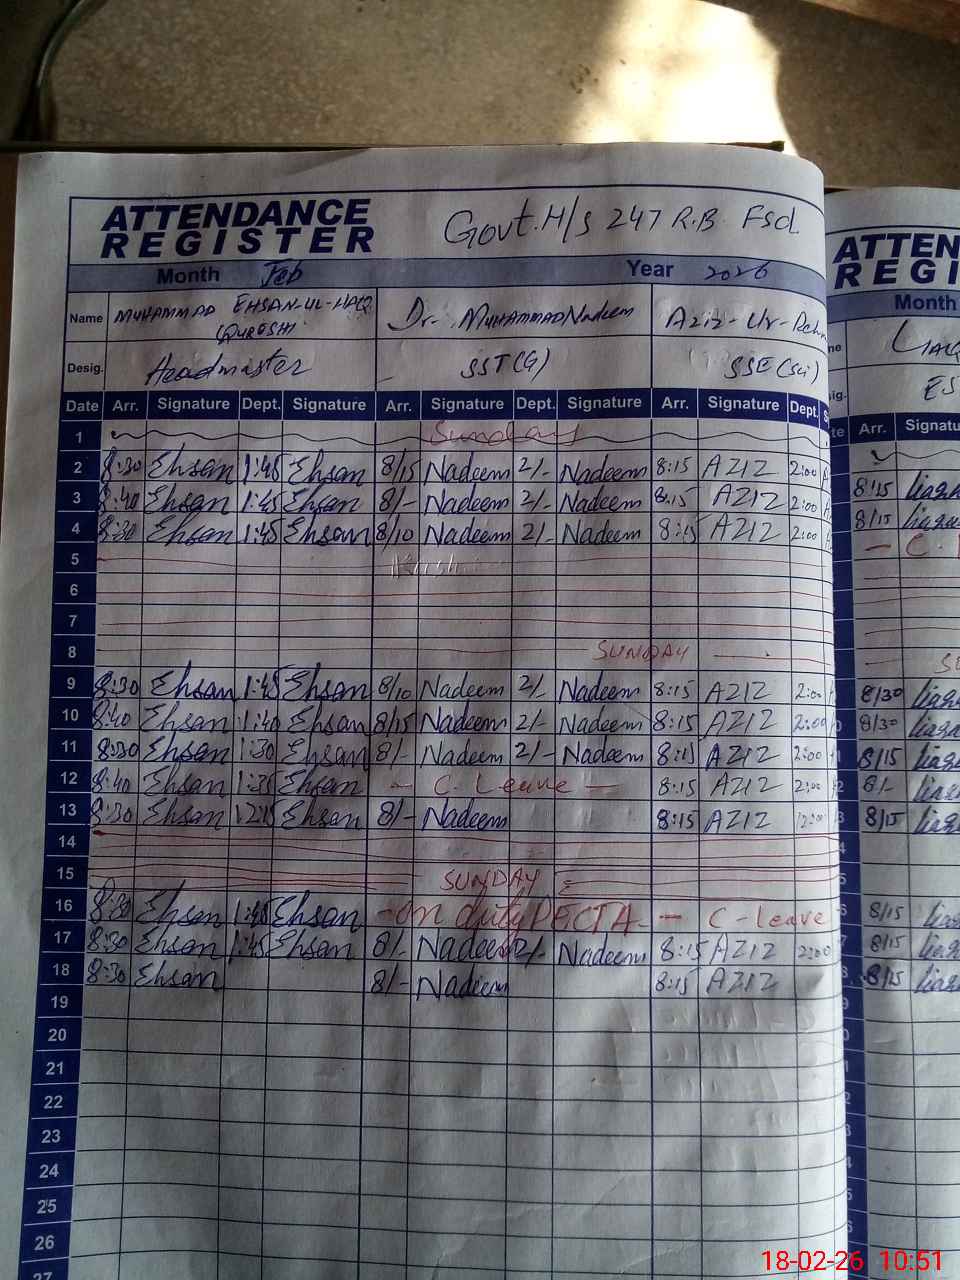 ATTENDANCE REGISTER Govt. H/S 247 R.B. Fsd
Month Feb Year 2026
Name MUHAMMAD EHSAN-UL-HAQ QURESHI Dr. MUHAMMAD Nadeem Aziz-Ur-Rehm
Desig. Headmaster SST(G) SSE(Sci)
Date Arr. Signature Dept. Signature Arr. Signature Dept. Signature Arr. Signature Dept. S
1 Sunday
2 8:30 Ehsan 1:45 Ehsan 8/15 Nadeem 2/- Nadeem 8:15 AZIZ 2:00
3 8:40 Ehsan 1:45 Ehsan 8/- Nadeem 2/- Nadeem 8:15 AZIZ 2:00
4 8:30 Ehsan 1:45 Ehsan 8/10 Nadeem 2/- Nadeem 8:15 AZIZ 2:00
5
6
7
8 SUNDAY
9 8:30 Ehsan 1:45 Ehsan 8/10 Nadeem 2/- Nadeem 8:15 AZIZ 2:00
10 8:40 Ehsan 1:40 Ehsan 8/15 Nadeem 2/- Nadeem 8:15 AZIZ 2:00
11 8:30 Ehsan 1:30 Ehsan 8/- Nadeem 2/- Nadeem 8:15 AZIZ 2:00
12 8:40 Ehsan 1:35 Ehsan - C. Leave - 8:15 AZIZ 2:00
13 8:30 Ehsan 12:15 Ehsan 8/- Nadeem 8:15 AZIZ
14
15 SUNDAY
16 8:30 Ehsan 1:45 Ehsan - on duty PECTA - - C-leave
17 8:30 Ehsan 1:45 Ehsan 8/- Nadeem 2/- Nadeem 8:15 AZIZ 2:00
18 8:30 Ehsan 8/- Nadeem 8:15 AZIZ
19
20
21
22
23
24
25
26
27
ATTEN
REGI
Month
LIAQ
ES
Arr. Signatu
8/15 liaqa
8/15 liaqa
- C.
8/30 liaqa
8/30 liaqa
8/15 liaqa
8/- liaqa
8/15 liaqa
8/15 liaqa
8/15 liaqa
8/15 liaqa
18-02-26 10:51